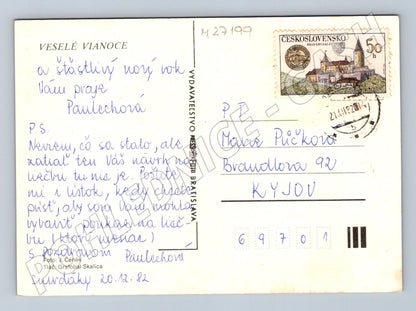 M 27199
VESELÉ VIANOCE
a šťastlivý nový rok
Vám praje
Paulechová
P.S.
Neviem, čo sa stalo, ale
zatiaľ ten Váš návrh na
liečbu tu nie je. Pošlite
mi i lístok, kedy chcete
prísť, aby som Vám mohla
vybaviť poukaz na lieč-
bu (ktorý mesiac)
S pozdravom Paulechová
20.12.82
Foto: J. Čeňek
Tlač: Grafobal Skalica
VYDAVATEĽSTVO BRATISLAVA
ČESKOSLOVENSKO
50 h
P. P.
Marie Půčková
Brandlova 92
KYJOV
69701